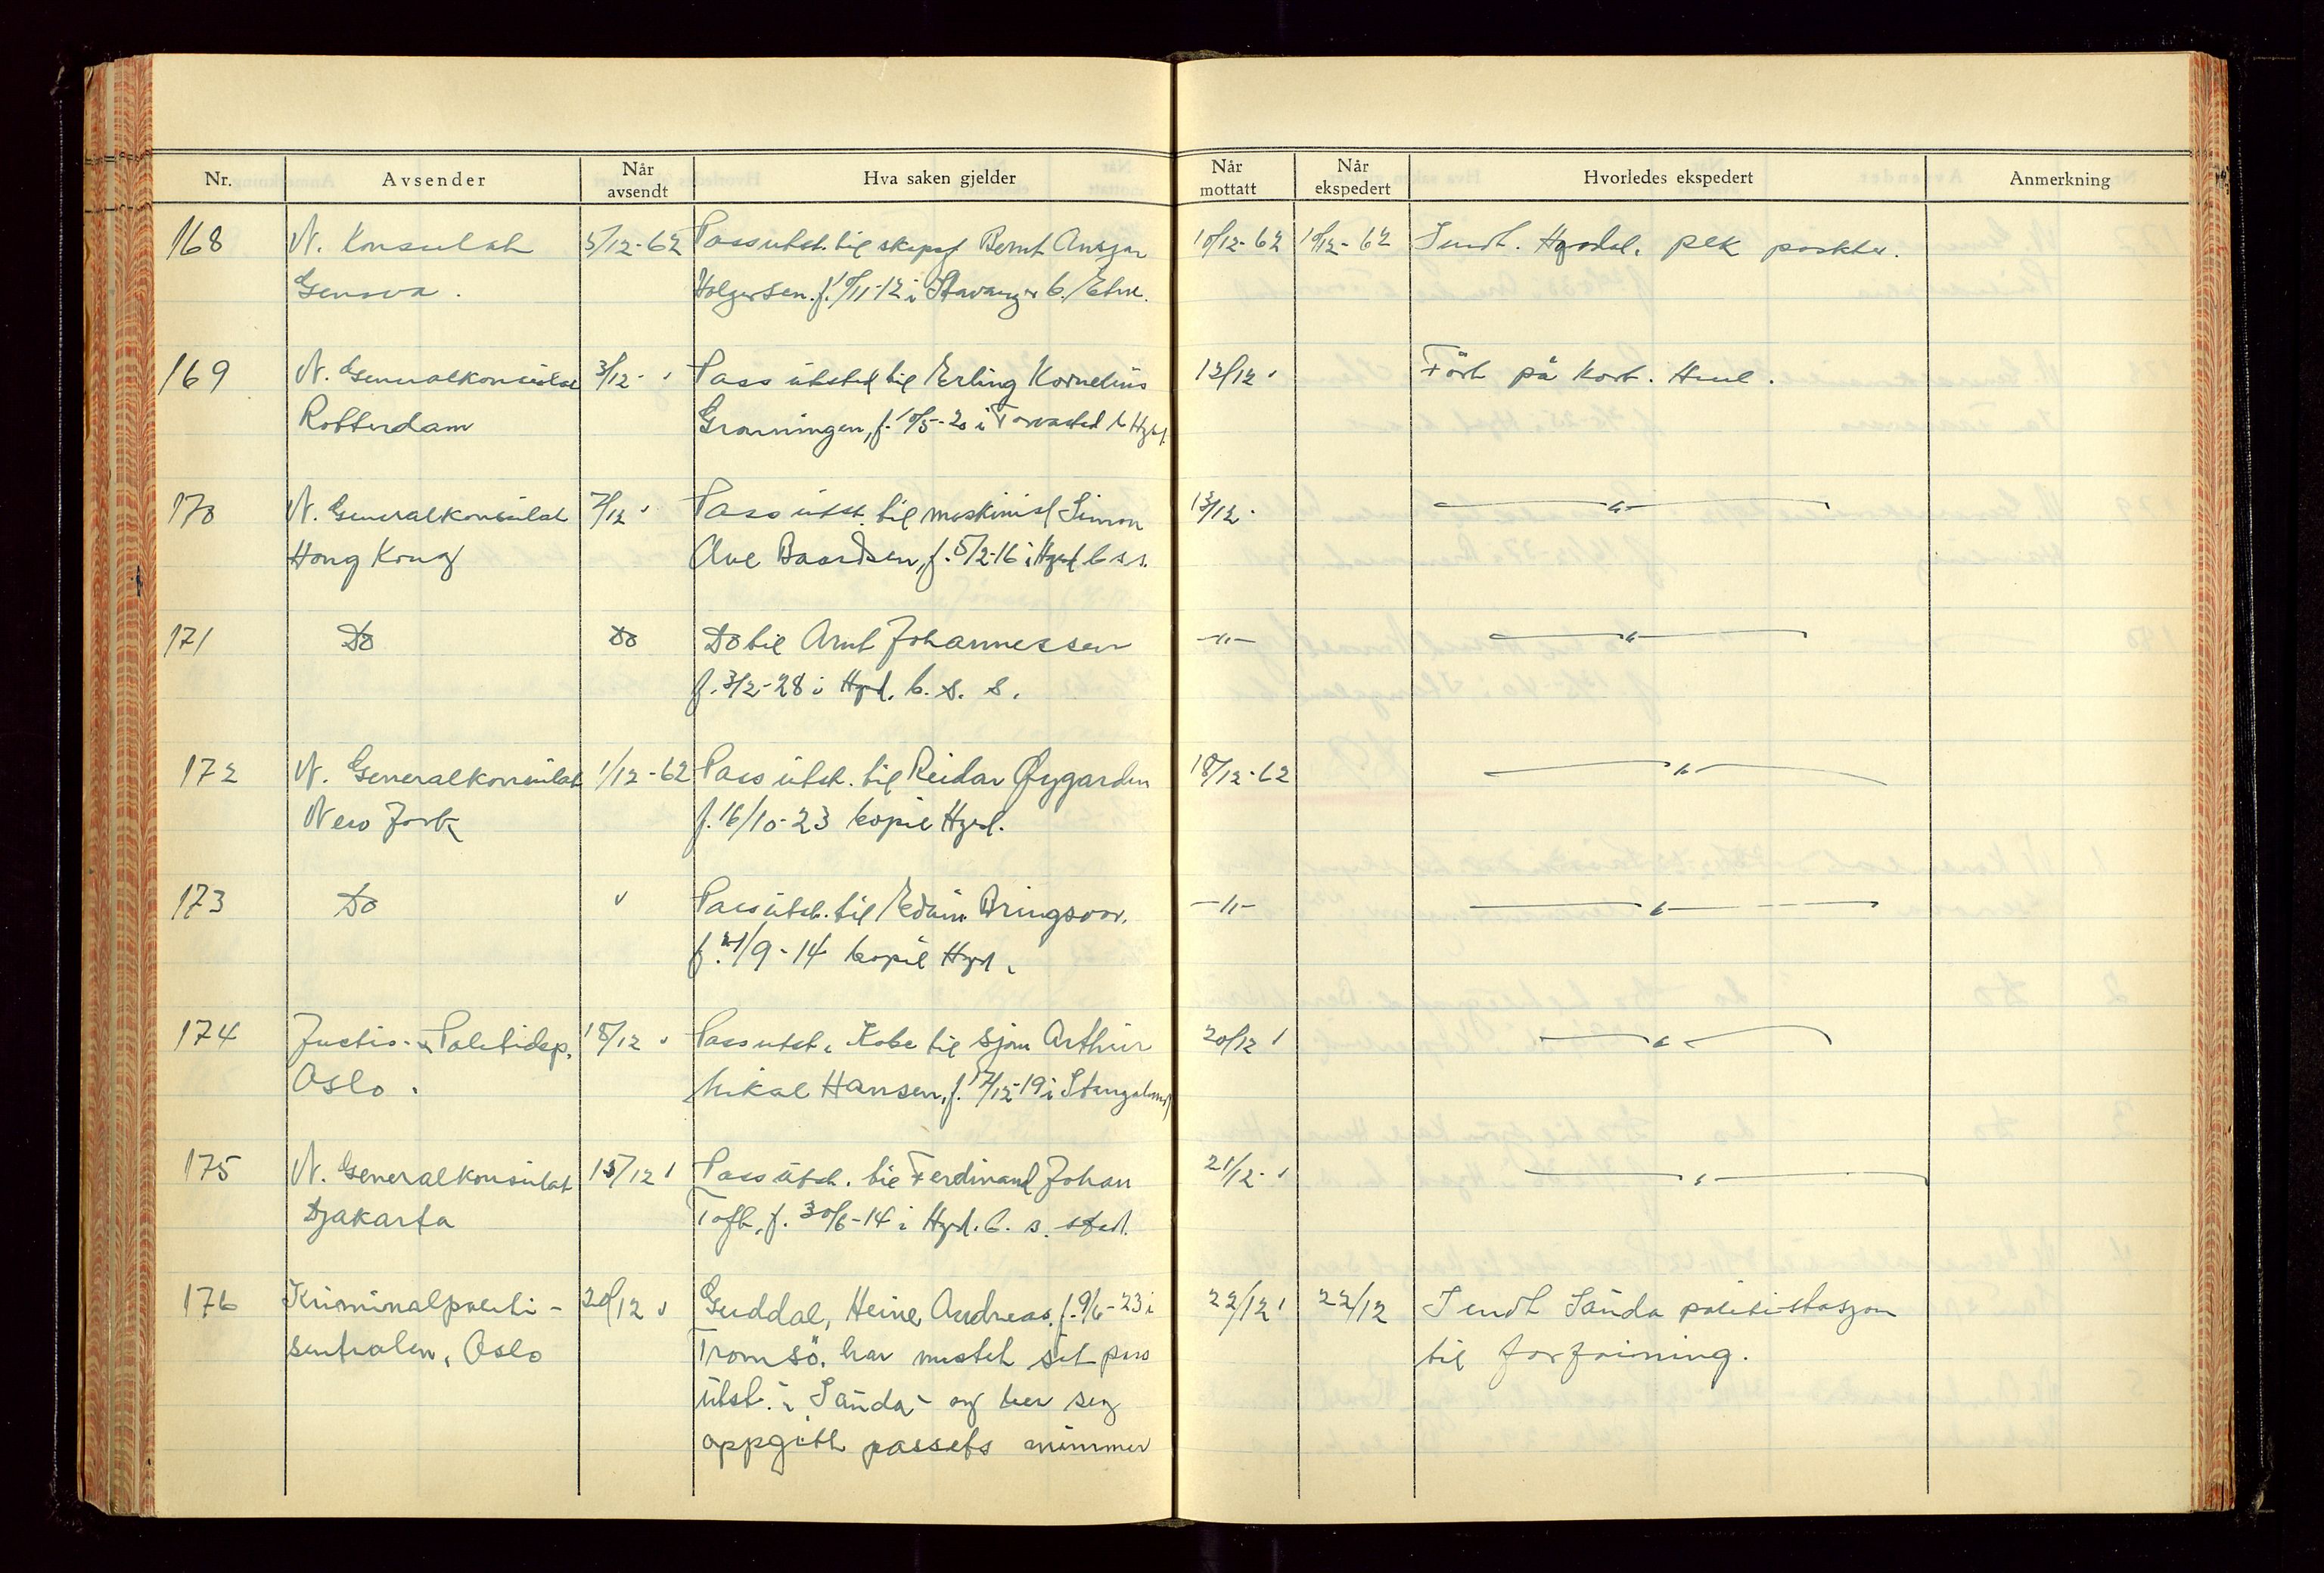 Nr. Avsender Når avsendt Hva saken gjelder Når mottatt Når ekspedert Hvorledes ekspedert Anmerkning
168 N. Konsulat 5/12-62 Pass utst. til skipsf Bernt Ansgar 10/12-62 10/12-62 Sendt. pck
Genova. Holgersen. f. 10/11-12 i Stavanger b. Etne.
169 N. Generalkonsulat 3/12- " Pass utsted til Erling Kornelius 12/12 " Fört på kort. Henl.
Rotterdam f. 10/5-20 i Torvasted b Hgsd.
170 N. Generalkonsulat 7/12 " Pass utst. til maskinist Simon 13/12- —"—
Hong Kong Ove Baardsen, f. 5/2-16 i Hgsd b s s.
171 Do Do Do til Arnt Johannessen —"— —"—
f. 3/2-28 i Hgsd. b. s. s.
172 N. Generalkonsulat 1/12-62 Pass utst. til Reidar Øygarden 18/12-62 —"—
New York f. 16/10-23 kopie Hgsd.
173 Do " Pass utst. til Edwin Bringsvor. —"— —"—
f. 21/9-14 kopie Hgsd.
174 Justis- & Politidep. 18/12 " Pass utst. Kobe til sjøm Arthur 20/12 " —"—
Oslo. Mikal Hansen, f. 17/12-19 i Stangaland
175 N. Generalkonsulat 15/12 " Pass utst. til Ferdinand Johan 21/12- " —"—
Djakarta Toft, f. 30/6-14 i Hgsd. b. s. sted.
176 Kriminalpoliti- 20/12 " Guddal, Heine Andreas, f. 9/6-23 i 22/12 " 22/12 Sendt Sauda politistasjon
sentralen, Oslo Tromsö, har mistet sit pass til forføining.
utst. i Sauda - og ber seg
oppgitt passets nummer